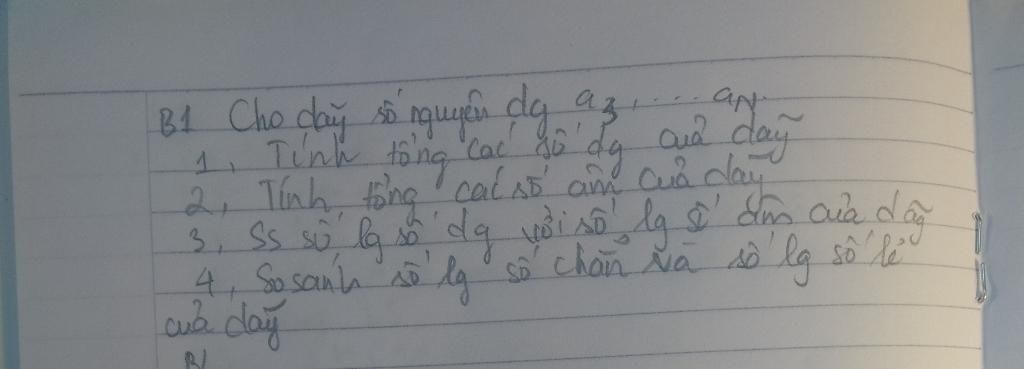 B1 Cho dãy số nguyên dg a3, .... aN.
1, Tính tổng các số dg của dãy
2, Tính tổng các số âm của dãy
3, SS số lg số dg với số lg số âm của dãy
4, So sánh số lg số chẵn và số lg số lẻ
của dãy
B1